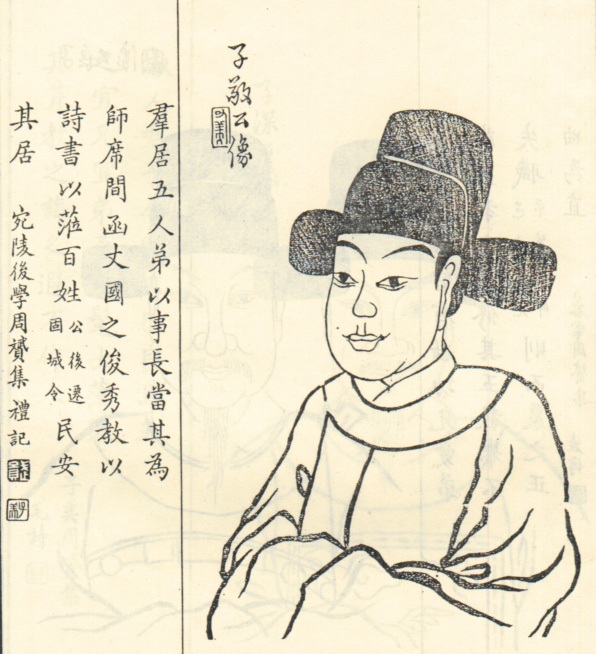 子敬公像
羣居五人弟以事長當其為
師席間函丈國之俊秀教以
詩書以蒞百姓公後遷固城令民安
其居 宛陵後學周贇集禮記